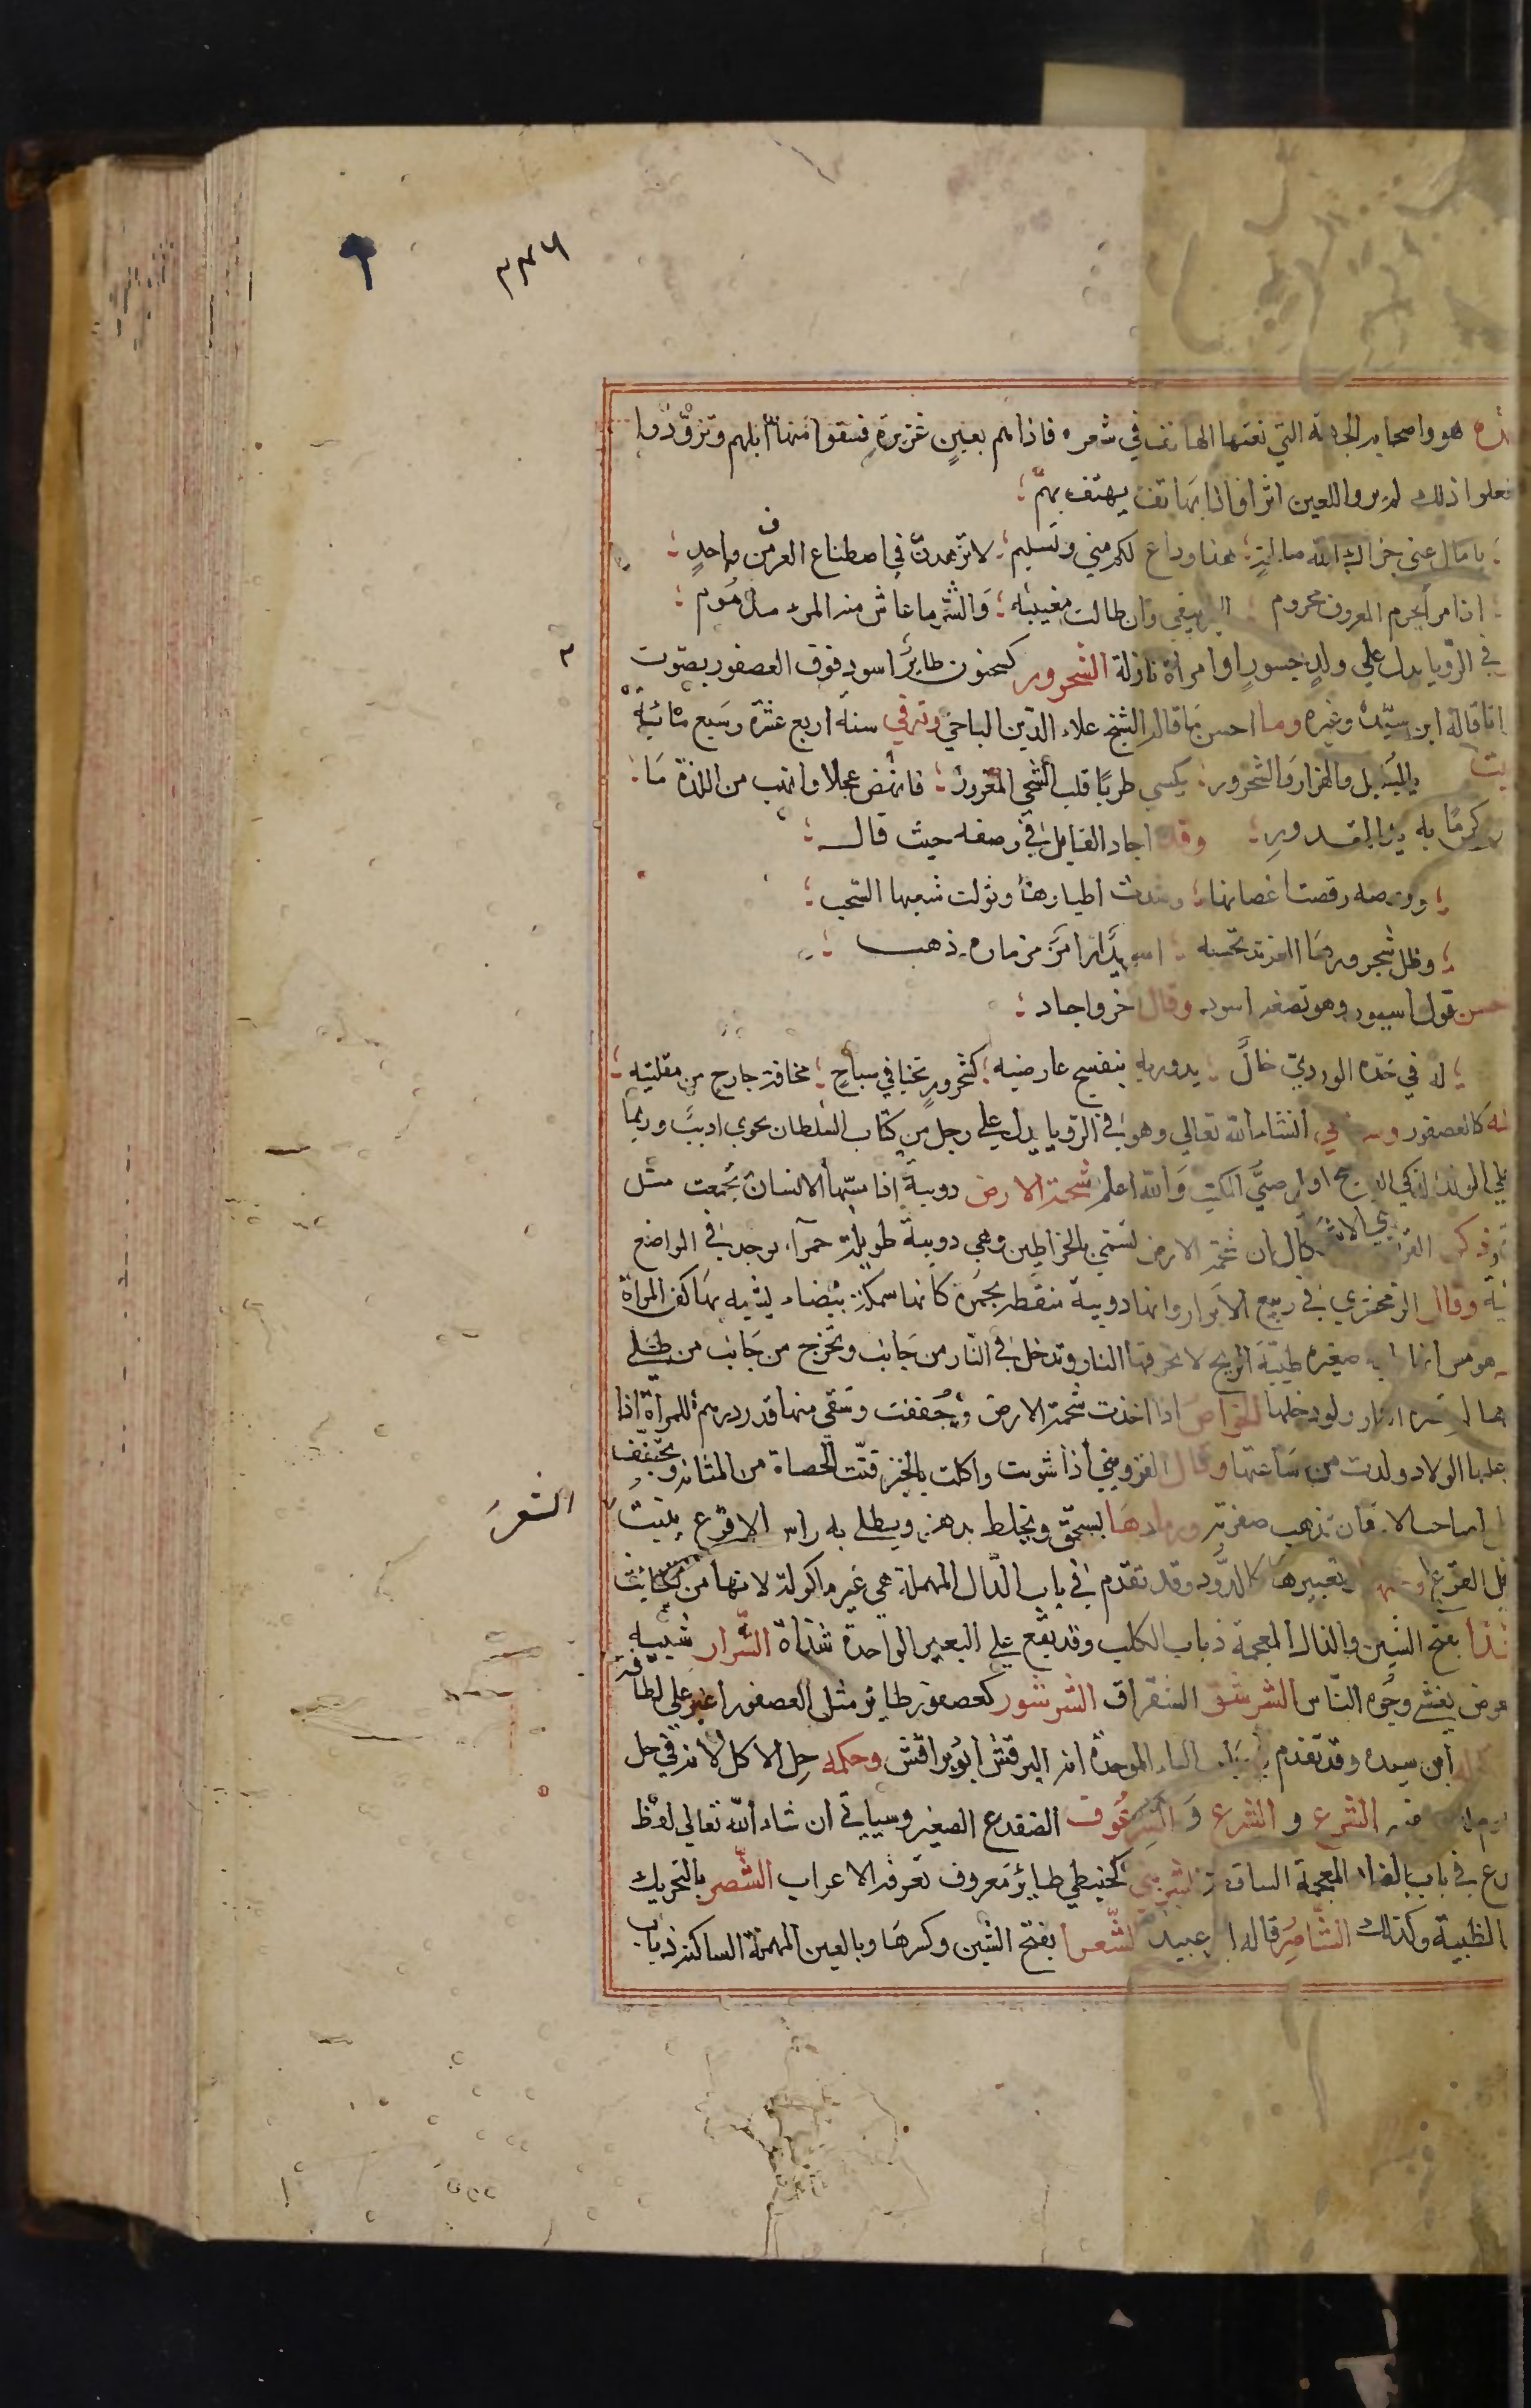 ٣٣٦
هو واصحابه الجهة التي نعتها الهاتف في شعره فاذا هم بعين غزيرة فسقوا منها ابلهم وتزودوا
فعلوا ذلك لم يروا للعين اثرا فاذا بهاتف يهتف بهم
يا مال عني جزاك الله صالحة هذا وداع لكم مني وتسليم لا تزهدن في اصطناع العرف من واحد
المعروف محروم الخير يبقي وان طالت مغيبته والشر ما عاش منه المرء مذموم
في الرويا يدل علي ولد جسور او امراة نازلة الشحرور كسحنون طاير اسود فوق العصفور يصوت
قاله ابن سيده وغيره وما احسن ما قال الشيخ علاء الدين الباجي وتوفي سنة اربع عشرة وسبع مائية
بالبلبل والهزار والشحرور يكسي طربا قلب الشجي المغرور فانهض عجلا وانهب من اللذة ما
كرما به المقدور وقد اجاد القايل في وصفه حيث قال
وروضه رقصت اغصانها وشدت اطيارها وتولت سقيها السحب
وظل شحرورها الغريد تحسبه اسيودا زامرا مزماره ذهب
قول اسيود وهو تصغير اسود وقال اخر واجاد
له في خده الوردي خال يدور به بنفسج عارضيه كشحرور تخبا في سياج مخافة جارح من مقلتيه
كالعصفور وسياتي انشاء الله تعالي وهو في الرويا يدل علي رجل من كتاب السلطان نحوي اديب وربما
علي الولد الذكي الفصيح او علي صبي المكتب والله اعلم شحمة الارض دويبة اذا مسها الانسان تجمعت مثل
وذكر في الاشكال ان شحمة الارض تسمي بالخراطين وهي دويبة طويلة حمرآء توجد في المواضع
وقال الزمخشري في ربيع الابرار انها دويبة منقطة بحمرة كانها سمكة بيضاء يشبه بها كف المراة
هرمس انها دابة صغيرة طيبة الريح لا تحرقها النار وتدخل في النار من جانب وتخرج من جانب من طلي
لم تضره النار ولو دخلها الخواص اذا اخذت شحمة الارض وجففت وسقي منها قدر درهم للمراة اذا
عليها الولاد ولدت من ساعتها وقال القزويني اذا شويت واكلت بالخبز فتت الحصاة من المثانة وتجفف
صاحب اليرقان تذهب صفرته ورمادها يسحق ويخلط بدهن ويطلي به راس الاقرع ينبت
الشعر
القرع وتعبيرها كالدود وقد تقدم في باب الدال المهملة هي غير ماكولة لانها من الخبائث
بفتح الشين والذال المعجمة ذباب الكلب وقد يقع علي البعير الواحدة شذاة الشرار شبيه
بعوض يغشي وجوه الناس الشرشق الشقراق الشرشور كعصفور طاير مثل العصفور اغبر علي لطافة
ابن سيده وقد تقدم في باب الباء الموحدة انه البرقش ابو براقش وحكمه حل الاكل لانه في حل
الشرع و الشرع و الشرغوف الضفدع الصغير وسياتي ان شاء الله تعالي لفظ
في باب الضاد المعجمة الساقطة كخنبطي طاير معروف تعرفه الاعراب الشصر بالتحريك
الظبية وكذلك الشاصر قاله ابو عبيدة الشعرا بفتح الشين وكسرها وبالعين المهملة الساكنة ذباب